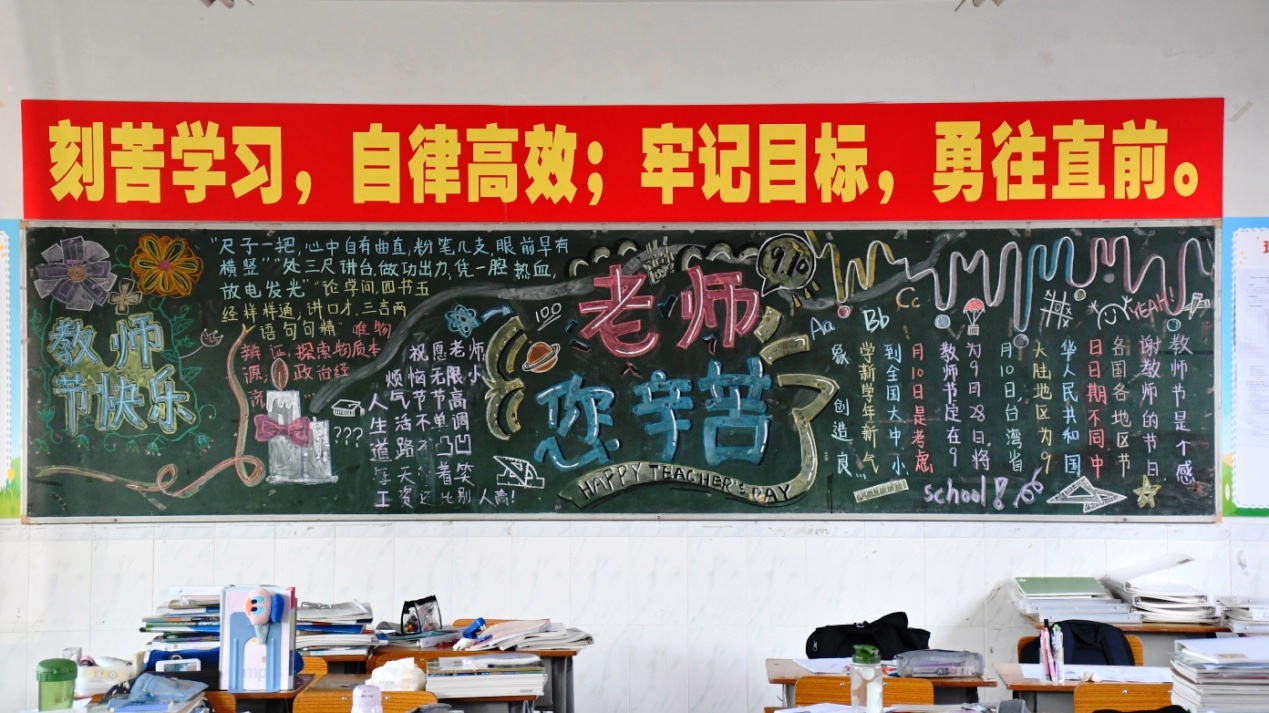 刻苦学习，自律高效；牢记目标，勇往直前。
教师
节快乐
"尺子一把，心中自有曲直，粉笔几支，眼前早有
横竖""处三尺讲台，做功出力，凭一腔热血，
放电发光""论学问，四书五
经样样通，讲口才，三言两
语句句精"唯物
辩证，探索物质本
源，政治经
济
祝愿老师
烦恼无限小
人气节节高
生活不单调
道路不凸凹
天天看着笑
工资比别人高！
???
100
老师
您辛苦
9.10
HAPPY TEACHER'S DAY
Aa
Bb
Cc
YEAH!
教师节是个感
谢教师的节日
各国各地区节
日日期不同，中
华人民共和国
大陆地区为9
月10日，台湾省
为9月28日，将
教师节定在9
月10日是考虑
到全国大中小
学新学年新气
象 创造良
school!